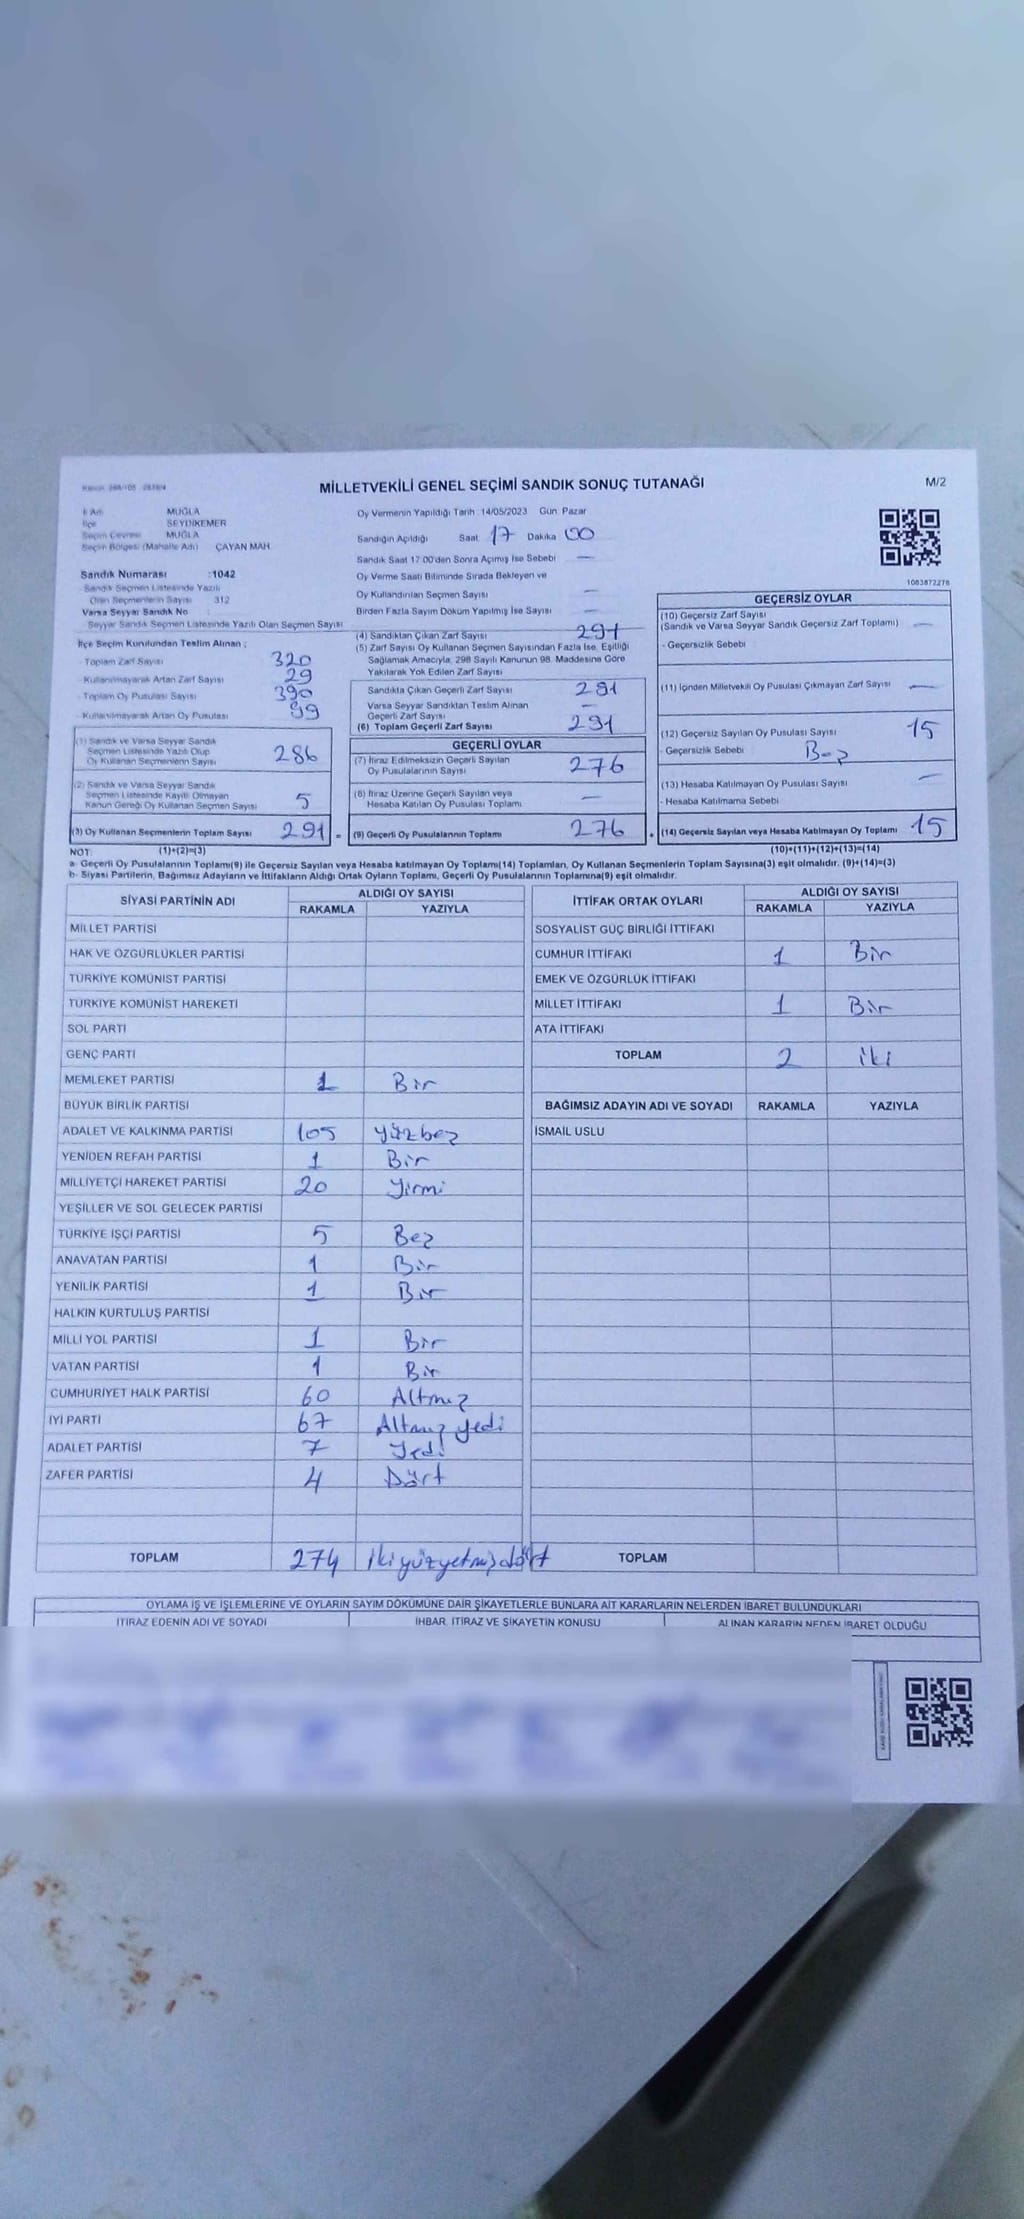 MİLLETVEKİLİ GENEL SEÇİMİ SANDIK SONUÇ TUTANAĞI
M/2
MUĞLA
İlçe SEYDİKEMER
Seçim Çevresi MUĞLA
Seçim Bölgesi (Mahalle Adı) ÇAYAN MAH.
Sandık Numarası :1042
Sandık Seçmen Listesinde Yazılı
Olan Seçmenlerin Sayısı 312
Varsa Seyyar Sandık No
Seyyar Sandık Seçmen Listesinde Yazılı Olan Seçmen Sayısı
Oy Vermenin Yapıldığı Tarih :14/05/2023 Gün: Pazar
Sandığın Açıldığı Saat 17 Dakika 00
Sandık Saat 17:00'den Sonra Açılmış İse Sebebi —
Oy Verme Saati Bitiminde Sırada Bekleyen ve
Oy Kullandırılan Seçmen Sayısı —
Birden Fazla Sayım Döküm Yapılmış İse Sayısı —
1083872278
İlçe Seçim Kurulundan Teslim Alınan :
- Toplam Zarf Sayısı 320
- Kullanılmayarak Artan Zarf Sayısı 29
- Toplam Oy Pusulası Sayısı 390
- Kullanılmayarak Artan Oy Pusulası 99
(1) Sandık ve Varsa Seyyar Sandık
Seçmen Listesinde Yazılı Olup
Oy Kullanan Seçmenlerin Sayısı 286
(2) Sandık ve Varsa Seyyar Sandık
Seçmen Listesinde Kayıtlı Olmayan
Kanun Gereği Oy Kullanan Seçmen Sayısı 5
(3) Oy Kullanan Seçmenlerin Toplam Sayısı 291 =
(4) Sandıktan Çıkan Zarf Sayısı 291
(5) Zarf Sayısı Oy Kullanan Seçmen Sayısından Fazla İse, Eşitliği
Sağlamak Amacıyla, 298 Sayılı Kanunun 98. Maddesine Göre
Yakılarak Yok Edilen Zarf Sayısı
Sandıkta Çıkan Geçerli Zarf Sayısı 291
Varsa Seyyar Sandıktan Teslim Alınan
Geçerli Zarf Sayısı —
(6) Toplam Geçerli Zarf Sayısı 291
GEÇERLİ OYLAR
(7) İtiraz Edilmeksizin Geçerli Sayılan
Oy Pusulalarının Sayısı 276
(8) İtiraz Üzerine Geçerli Sayılan veya
Hesaba Katılan Oy Pusulası Toplamı —
(9) Geçerli Oy Pusulalarının Toplamı 276 +
GEÇERSİZ OYLAR
(10) Geçersiz Zarf Sayısı
(Sandık ve Varsa Seyyar Sandık Geçersiz Zarf Toplamı) —
- Geçersizlik Sebebi
(11) İçinden Milletvekili Oy Pusulası Çıkmayan Zarf Sayısı —
(12) Geçersiz Sayılan Oy Pusulası Sayısı 15
- Geçersizlik Sebebi : Boş
(13) Hesaba Katılmayan Oy Pusulası Sayısı —
- Hesaba Katılmama Sebebi
(14) Geçersiz Sayılan veya Hesaba Katılmayan Oy Toplamı 15
NOT: (1)+(2)=(3) (10)+(11)+(12)+(13)=(14)
a- Geçerli Oy Pusulalarının Toplamı(9) ile Geçersiz Sayılan veya Hesaba katılmayan Oy Toplamı(14) Toplamları, Oy Kullanan Seçmenlerin Toplam Sayısına(3) eşit olmalıdır. (9)+(14)=(3)
b- Siyasi Partilerin, Bağımsız Adayların ve İttifakların Aldığı Ortak Oyların Toplamı, Geçerli Oy Pusulalarının Toplamına(9) eşit olmalıdır.
SİYASİ PARTİNİN ADI ALDIĞI OY SAYISI
RAKAMLA YAZIYLA
MİLLET PARTİSİ
HAK VE ÖZGÜRLÜKLER PARTİSİ
TÜRKİYE KOMÜNİST PARTİSİ
TÜRKİYE KOMÜNİST HAREKETİ
SOL PARTİ
GENÇ PARTİ
MEMLEKET PARTİSİ 1 Bir
BÜYÜK BİRLİK PARTİSİ
ADALET VE KALKINMA PARTİSİ 105 Yüzbeş
YENİDEN REFAH PARTİSİ 1 Bir
MİLLİYETÇİ HAREKET PARTİSİ 20 Yirmi
YEŞİLLER VE SOL GELECEK PARTİSİ
TÜRKİYE İŞÇİ PARTİSİ 5 Beş
ANAVATAN PARTİSİ 1 Bir
YENİLİK PARTİSİ 1 Bir
HALKIN KURTULUŞ PARTİSİ
MİLLİ YOL PARTİSİ 1 Bir
VATAN PARTİSİ 1 Bir
CUMHURİYET HALK PARTİSİ 60 Altmış
İYİ PARTİ 67 Altmış yedi
ADALET PARTİSİ 7 Yedi
ZAFER PARTİSİ 4 Dört
TOPLAM 274 İkiyüzyetmişdört
İTTİFAK ORTAK OYLARI ALDIĞI OY SAYISI
RAKAMLA YAZIYLA
SOSYALİST GÜÇ BİRLİĞİ İTTİFAKI
CUMHUR İTTİFAKI 1 Bir
EMEK VE ÖZGÜRLÜK İTTİFAKI
MİLLET İTTİFAKI 1 Bir
ATA İTTİFAKI
TOPLAM 2 İki
BAĞIMSIZ ADAYIN ADI VE SOYADI RAKAMLA YAZIYLA
İSMAİL USLU
TOPLAM
OYLAMA İŞ VE İŞLEMLERİNE VE OYLARIN SAYIM DÖKÜMÜNE DAİR ŞİKAYETLERLE BUNLARA AİT KARARLARIN NELERDEN İBARET BULUNDUKLARI
İTİRAZ EDENİN ADI VE SOYADI İHBAR, İTİRAZ VE ŞİKAYETİN KONUSU ALINAN KARARIN NEDEN İBARET OLDUĞU